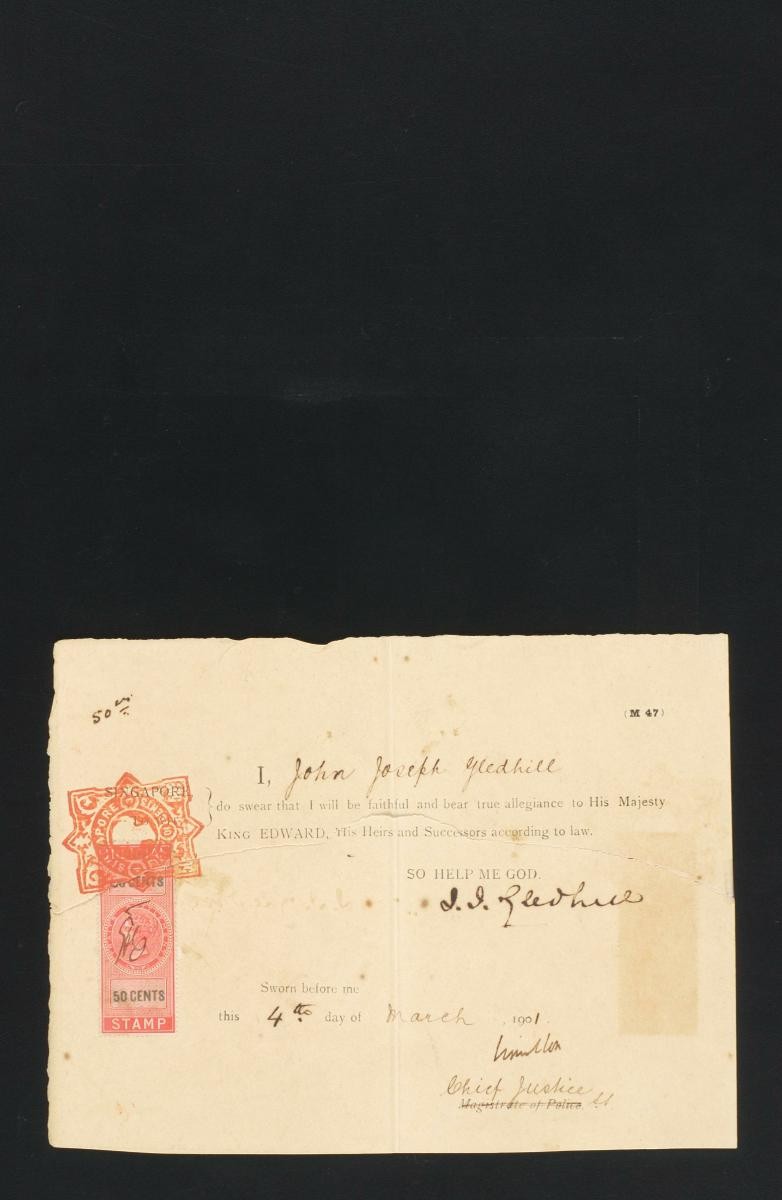 50 cts
(M 47)
I, John Joseph Gledhill
SINGAPORE,
do swear that I will be faithful and bear true allegiance to His Majesty
KING EDWARD, His Heirs and Successors according to law.
SO HELP ME GOD.
J. J. Gledhill
50 CENTS
50 CENTS
STAMP
Sworn before me
this 4th day of March, 1901.
Chief Justice
Magistrate of Police